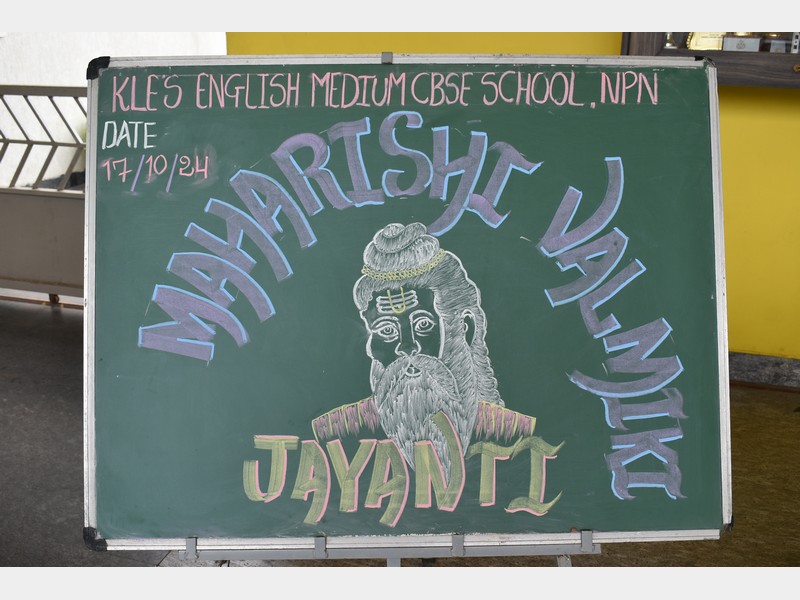 KLE'S ENGLISH MEDIUM CBSE SCHOOL, NPN
DATE
17/10/24
MAHARISHI VALMIKI
JAYANTI